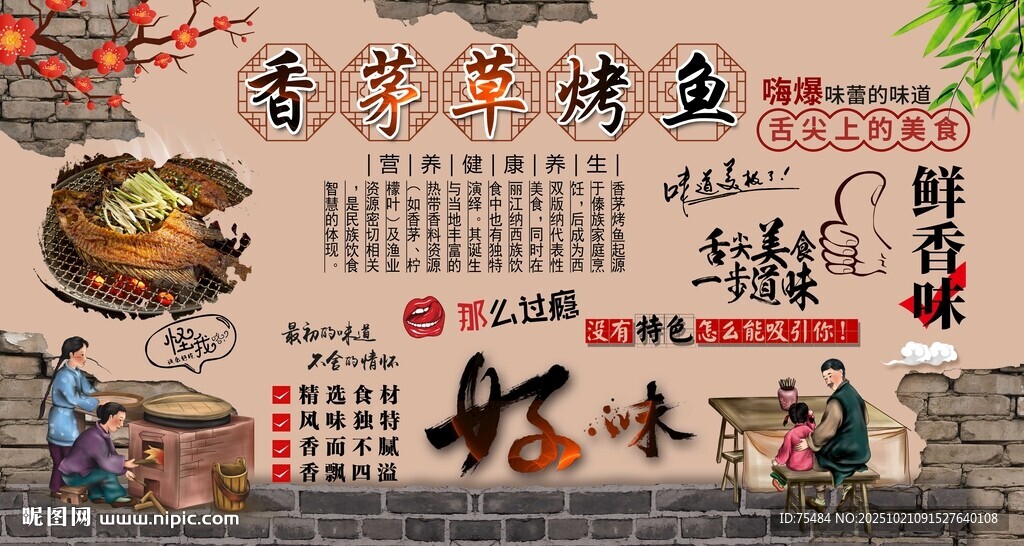 香茅草烤鱼
嗨爆味蕾的味道
舌尖上的美食
营养健康养生
香茅烤鱼起源
于傣族家庭烹
饪，后成为西
双版纳代表性
美食，同时在
丽江纳西族饮
食中也有独特
演绎。其诞生
与当地丰富的
热带香料资源
（如香茅、柠
檬叶）及渔业
资源密切相关
，是民族饮食
智慧的体现。
味道美极了！
鲜香味
舌尖美食
一步道味
那么过瘾
没有特色怎么能吸引你！
怪我
最初的味道
不舍的情怀
精选食材
风味独特
香而不腻
香飘四溢
好味
昵图网 www.nipic.com
ID:75484 NO:20251021091527640108